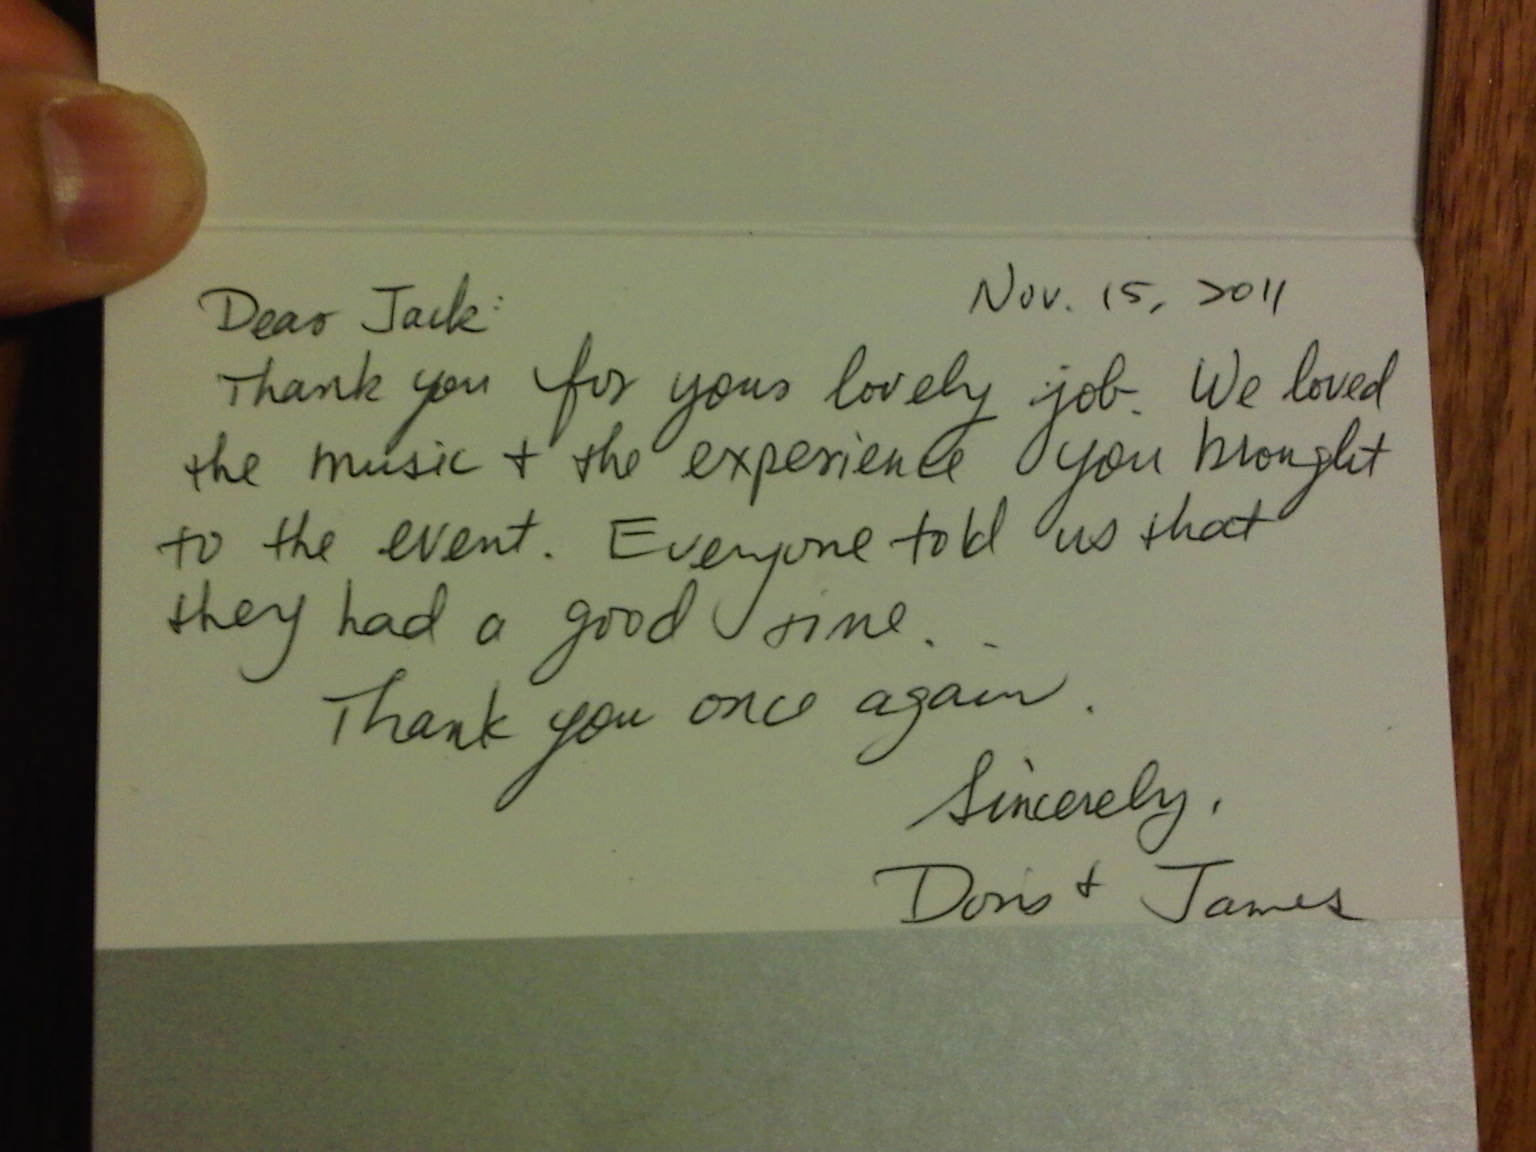 Dear Jack: Nov. 15, 2011
Thank you for your lovely job. We loved
the music + the experience you brought
to the event. Everyone told us that
they had a good time.
Thank you once again.
Sincerely,
Doris + James